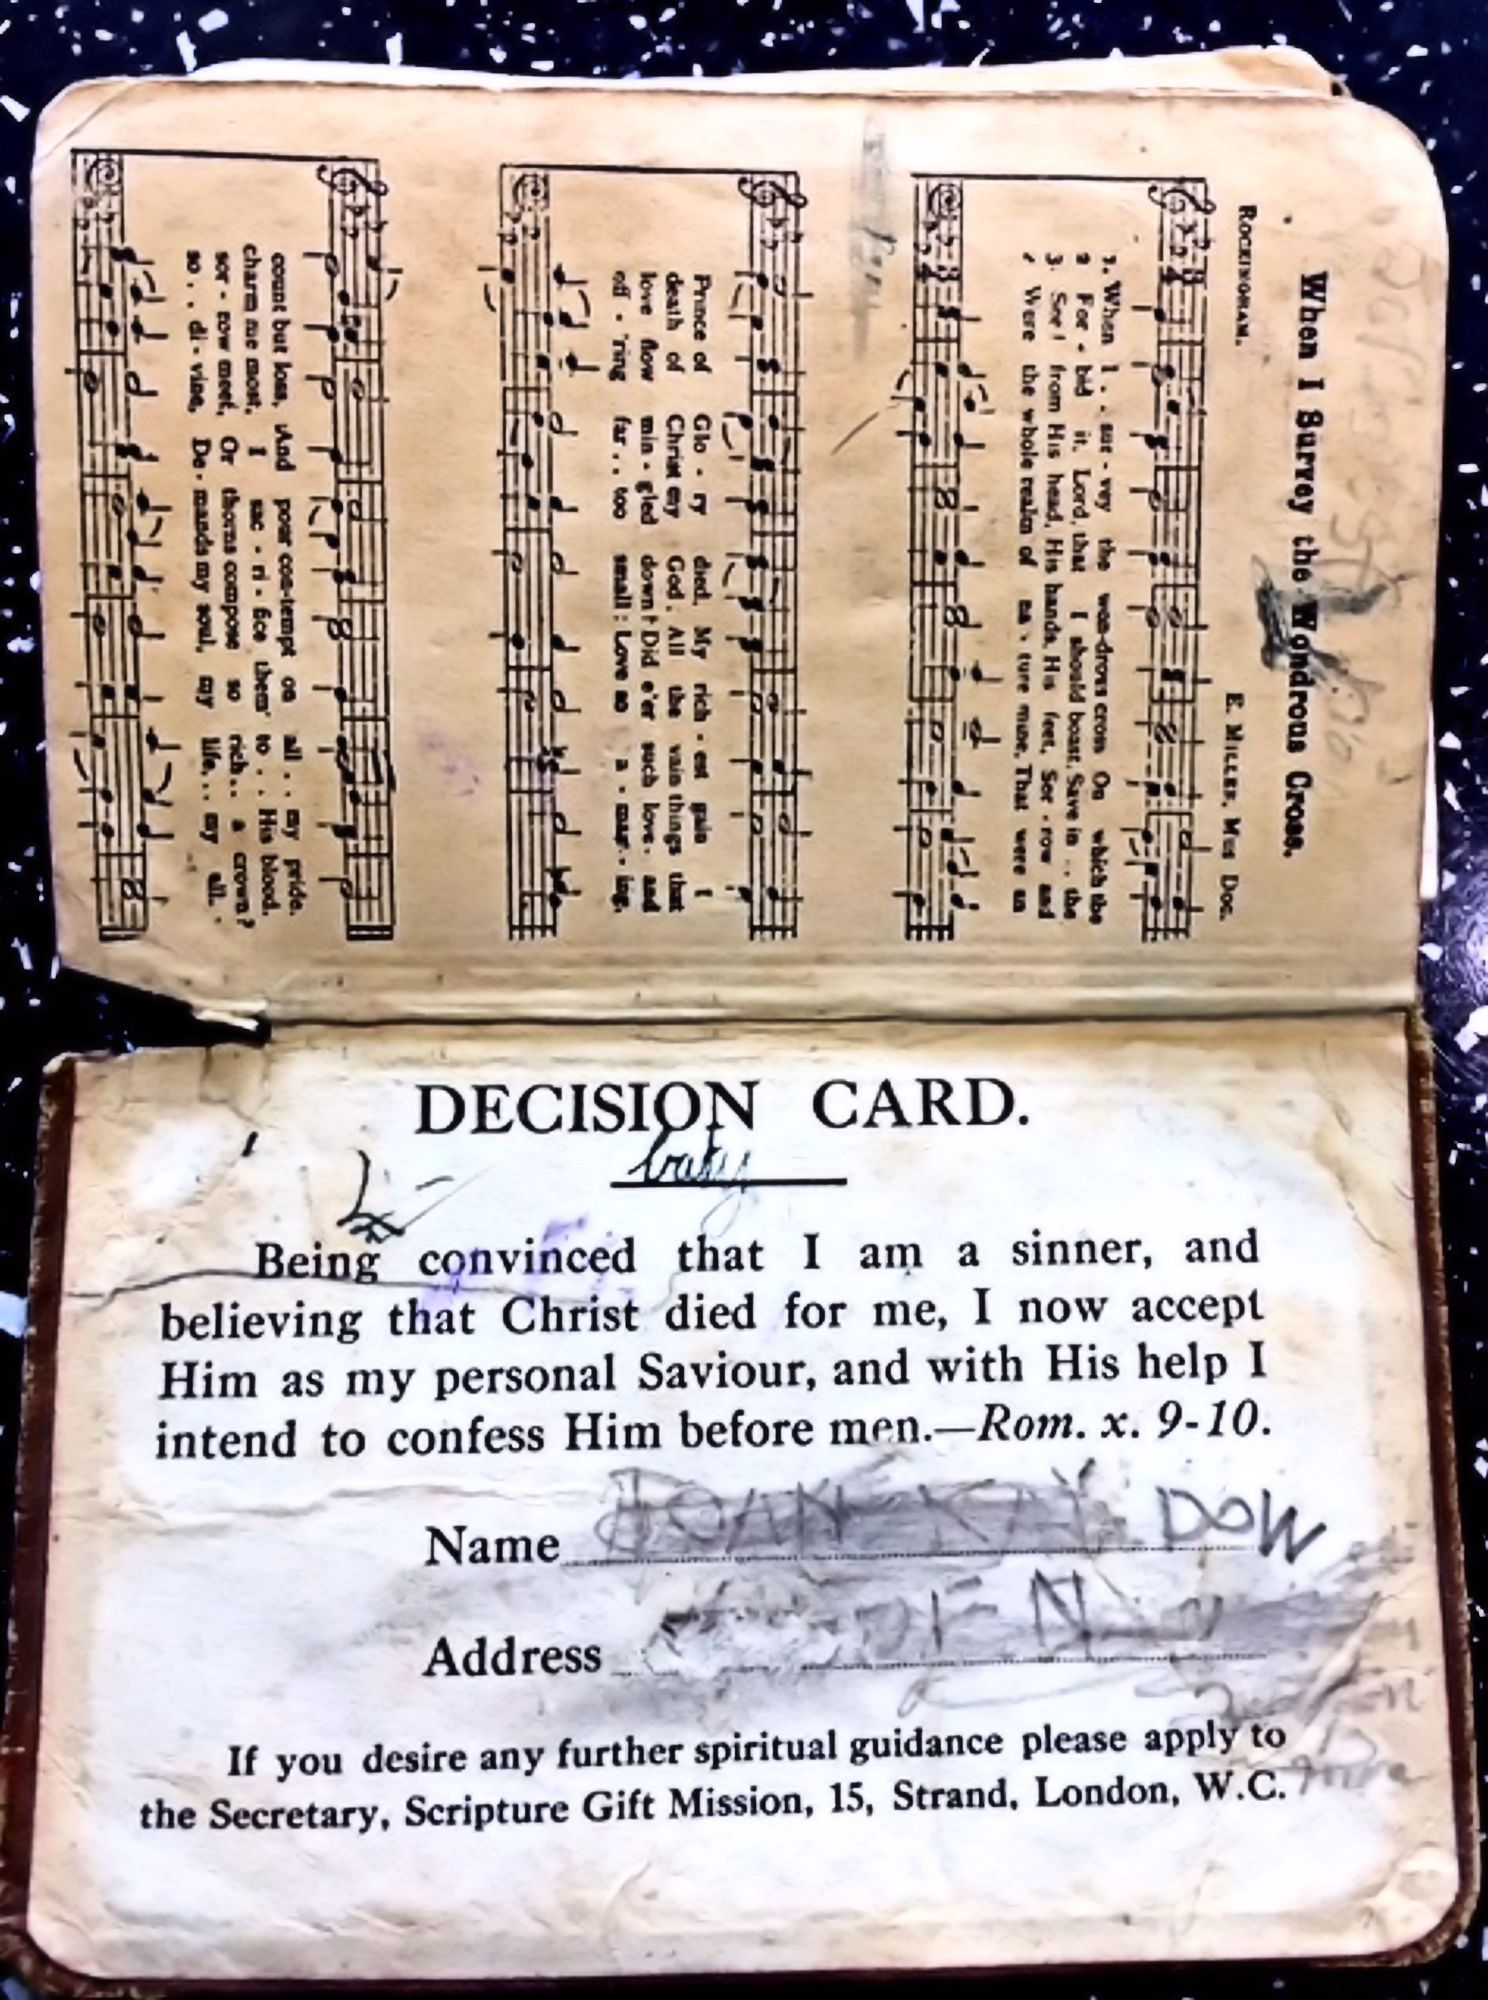 When I Survey the Wondrous Cross.
ROCKINGHAM. E. MILLER, Mus Doc.
1. When I . . sur - vey the won-drous cross On which the
2 For - bid it, Lord, that I should boast, Save in . . the
3. See! from His head, His hands, His feet, Sor - row and
Were the whole realm of na - ture mine, That were an
Prince of Glo - ry died, My rich - est gain I
death of Christ my God. All the vain things that
love flow min - gled down! Did e'er such love, and
off - 'ring far . . too small: Love so a - maz - ing,
count but loss, And pour con-tempt on all . . my pride.
charm me most, I sac - ri - fice them to . . His blood.
sor - row meet, Or thorns compose so rich . . a crown?
so . . di - vine, De - mands my soul, my life, . . my all. .
DECISION CARD.
baby
Being convinced that I am a sinner, and
believing that Christ died for me, I now accept
Him as my personal Saviour, and with His help I
intend to confess Him before men.—Rom. x. 9-10.
Name JOAN KAY DOW
Address
If you desire any further spiritual guidance please apply to
the Secretary, Scripture Gift Mission, 15, Strand, London, W.C.